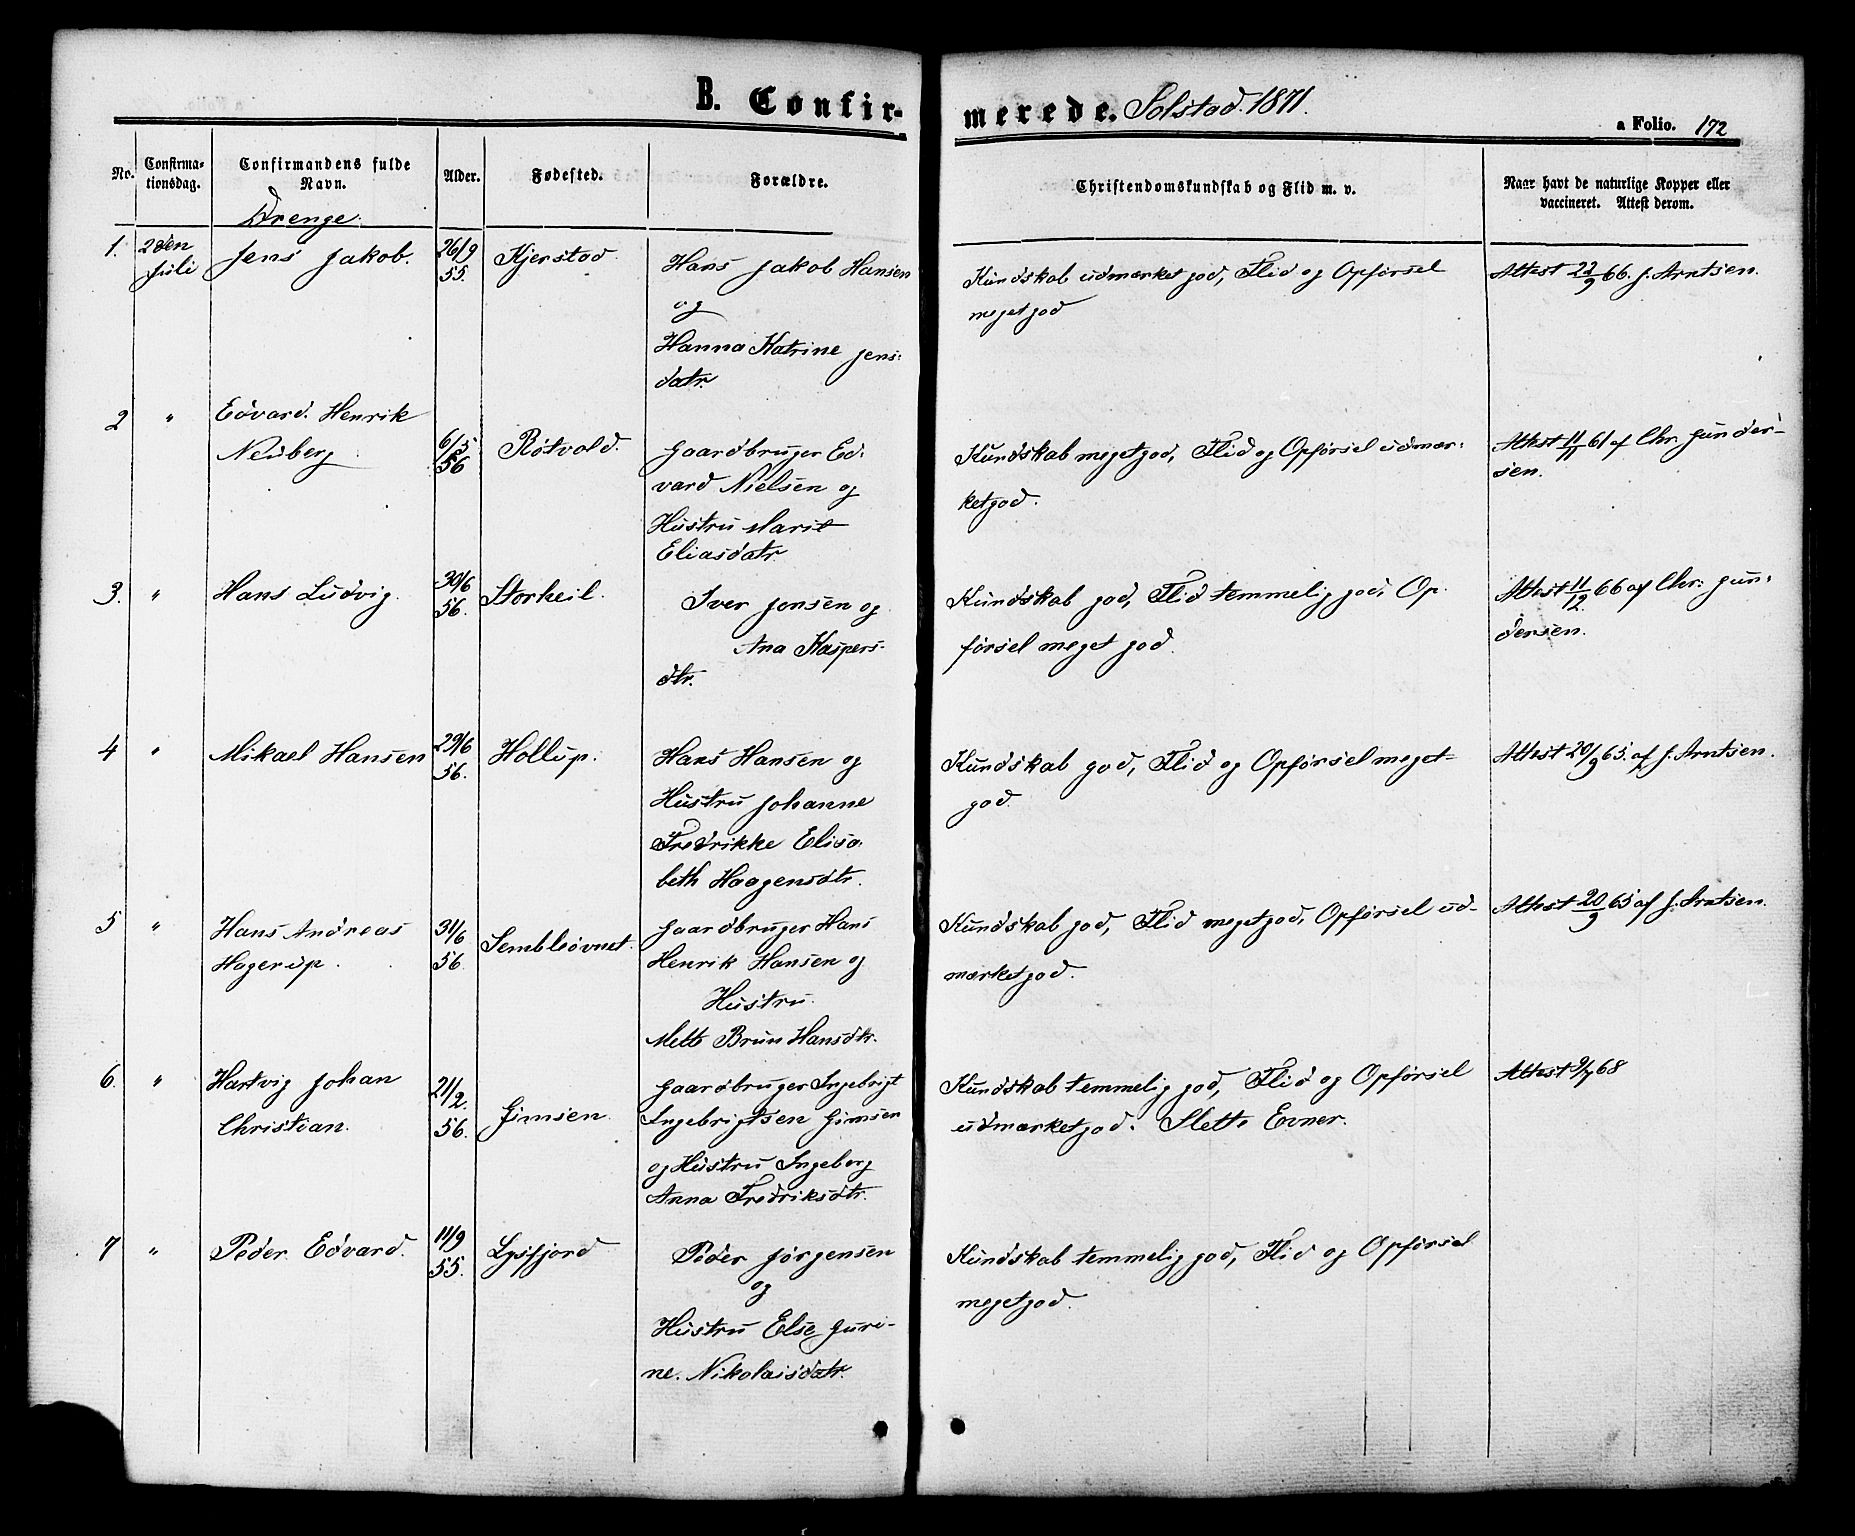 B. Confirmerede. Solstad. 1871.
a Folio. 172
No.
Confirmationsdag.
Confirmandens fulde Navn.
Alder.
Fødested.
Forældre.
Christendomskundskab og Flid m. v.
Naar havt de naturlige Kopper eller
vaccineret. Attest derom.
Drenge.
1. 2den Jens Jakob. 26/9 Kjerstad. Hans Jakob Hansen
Juli 55.
og
Hanna Katrine Jens:
datr.
Kundskab udmærket god, Flid og Opførsel
meget god
Attest 22/9 66. J. Arntsen.
2 " Edvard. Henrik
Neuberg 6/5 56 Røtvold. Gaardbruger Ed:
vard Nielsen og
Hustru Marit
Eliasdatr.
Kundskab megetgod, Flid og Opførsel udmær:
ketgod.
Attest 11/11 61 af Chr. Gunder-
sen.
3. " Hans Ludvig. 30/6 56. Storheil. Iver Jonsen og
Ana Kaspers-
dtr.
Kundskab god, Flid temmelig god, Op.
førsel meget god.
Attest 11/12 66 af Chr: Gun:
dersen.
4 " Mikael Hansen 29/6 56. Hollup. Hans Hansen og
Hustru Johanne
Fredrikke Elisa
beth Haagensdtr.
Kundskab god, Flid og Opførsel meget-
god.
Attest 20/9 65. af J. Arntsen.
5 " Hans Andreas
Hagerup. 31/6 56. Gaardbruger Hans
Henrik Hansen og
Hustru.
Mette Brun Hansdtr.
Kundskab god, Flid megetgod, Opførsel ud-
mærketgod.
Attest 20/9 65 af J. Arntsen.
6. " Hartvig Johan
Christian. 21/2. 56. Gimsen. Gaardbruger Ingebrigt
Ingebrigtsen Gimsen
og Hustru Ingeborg
Anna Fredriksdtr.
Kundskab temmelig god, Flid og Opførsel
udmærketgod. Slette Evner.
Attest 9/7 68
7 " Peder Edvard. 11/9 55. Lysfjord Peder Jørgensen
og
Hustru Else Guri-
ne. Nikolaisdatr.
Kundskab temmelig god, Flid og Opførsel
megetgod.